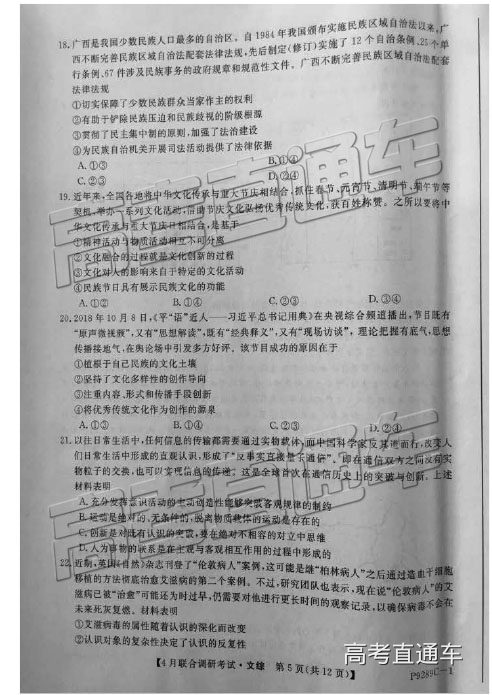 18.广西是我国少数民族人口最多的自治区。自1984年我国颁布实施民族区域自治法以来,广
西不断完善民族区域自治法配套法律法规,先后制定(修订)实施了12个自治条例、25个单
行条例、67件涉及民族事务的政府规章和规范性文件。广西不断完善民族区域自治法配套
法律法规
①切实保障了少数民族群众当家作主的权利
②有助于铲除民族压迫和民族歧视的阶级根源
③贯彻了民主集中制的原则,加强了法治建设
④为民族自治机关开展司法活动提供了法律依据
A.①③ B.①④
C.②③ D.②④
19.近年来,全国各地将中华文化传承与重大节庆相结合,抓住春节、元宵节、清明节、端午节等
契机,举办一系列文化活动,借助节庆文化弘扬优秀传统文化,获百姓称赞。之所以要将中
华文化传承与重大节庆日相结合,是基于
①精神活动与物质活动相互不可分离
②文化融合的过程就是文化创新的过程
③文化对人的影响来自于特定的文化活动
④民族节日具有展示民族文化的功能
A.①② B.①④ C.②③ D.③④
20.2018年10月8日,《平“语”近人——习近平总书记用典》在央视综合频道播出,节目既有
“原声微视频”,又有“思想解读”,既有“经典释义”,又有“现场访谈”,理论把握有底气,思想
传播接地气,在舆论场中引发多方好评。该节目成功的原因在于
①植根于自己的民族文化土壤
②坚持了文化多样性的创作导向
③注重内容、形式和传播手段创新
④将优秀传统文化作为创作的源泉
A.①③ B.①④ C.②③ D.②④
21.以往日常生活中,任何信息的传输都需要通过实物载体,而中国科学家反其道而行,改变人
们日常生活中形成的直观认识,形成了“反事实直接量子通信”,即在通信双方之间没有实
物粒子的交换,也可以实现信息的传递。这是全球首次在通信历史上的突破与创新。上述
材料表明
A.充分发挥意识活动的主动创造性能够突破客观规律的制约
B.运动是绝对的、无条件的,脱离物质载体的运动是存在的
C.创新是对既有认识的突破,要在绝对不相容的对立中思维
D.人为事物的联系是在主观与客观相互作用的过程中形成的
22.近期,英国《自然》杂志刊登了“伦敦病人”案例,这可能是继“柏林病人”之后通过造血干细胞
移植的方法彻底治愈艾滋病的第二个案例。不过,研究团队也表示,现在说“伦敦病人”的艾
滋病已被“治愈”可能还为时过早,仍需要对他进行更长时间的观察记录,以确保病毒不会在
未来死灰复燃。材料表明
①艾滋病毒的属性随着认识的深化而改变
②认识对象的复杂性决定了认识的反复性
【4月联合调研考试·文综 第5页(共12页)】 P9289C-1
高考直通车
高考直通车
高考直通车